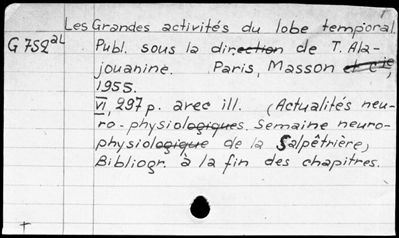 Les Grandes activités du lobe temporal.
G 752 aL Publ. sous la direction de T. Ala-
jouanine. Paris, Masson et Cie,
1955.
VI, 297 p. avec ill. (Actualités neu-
ro-physiologiques. Semaine neuro-
physiologique de la Salpêtrière)
Bibliogr. à la fin des chapitres.
+